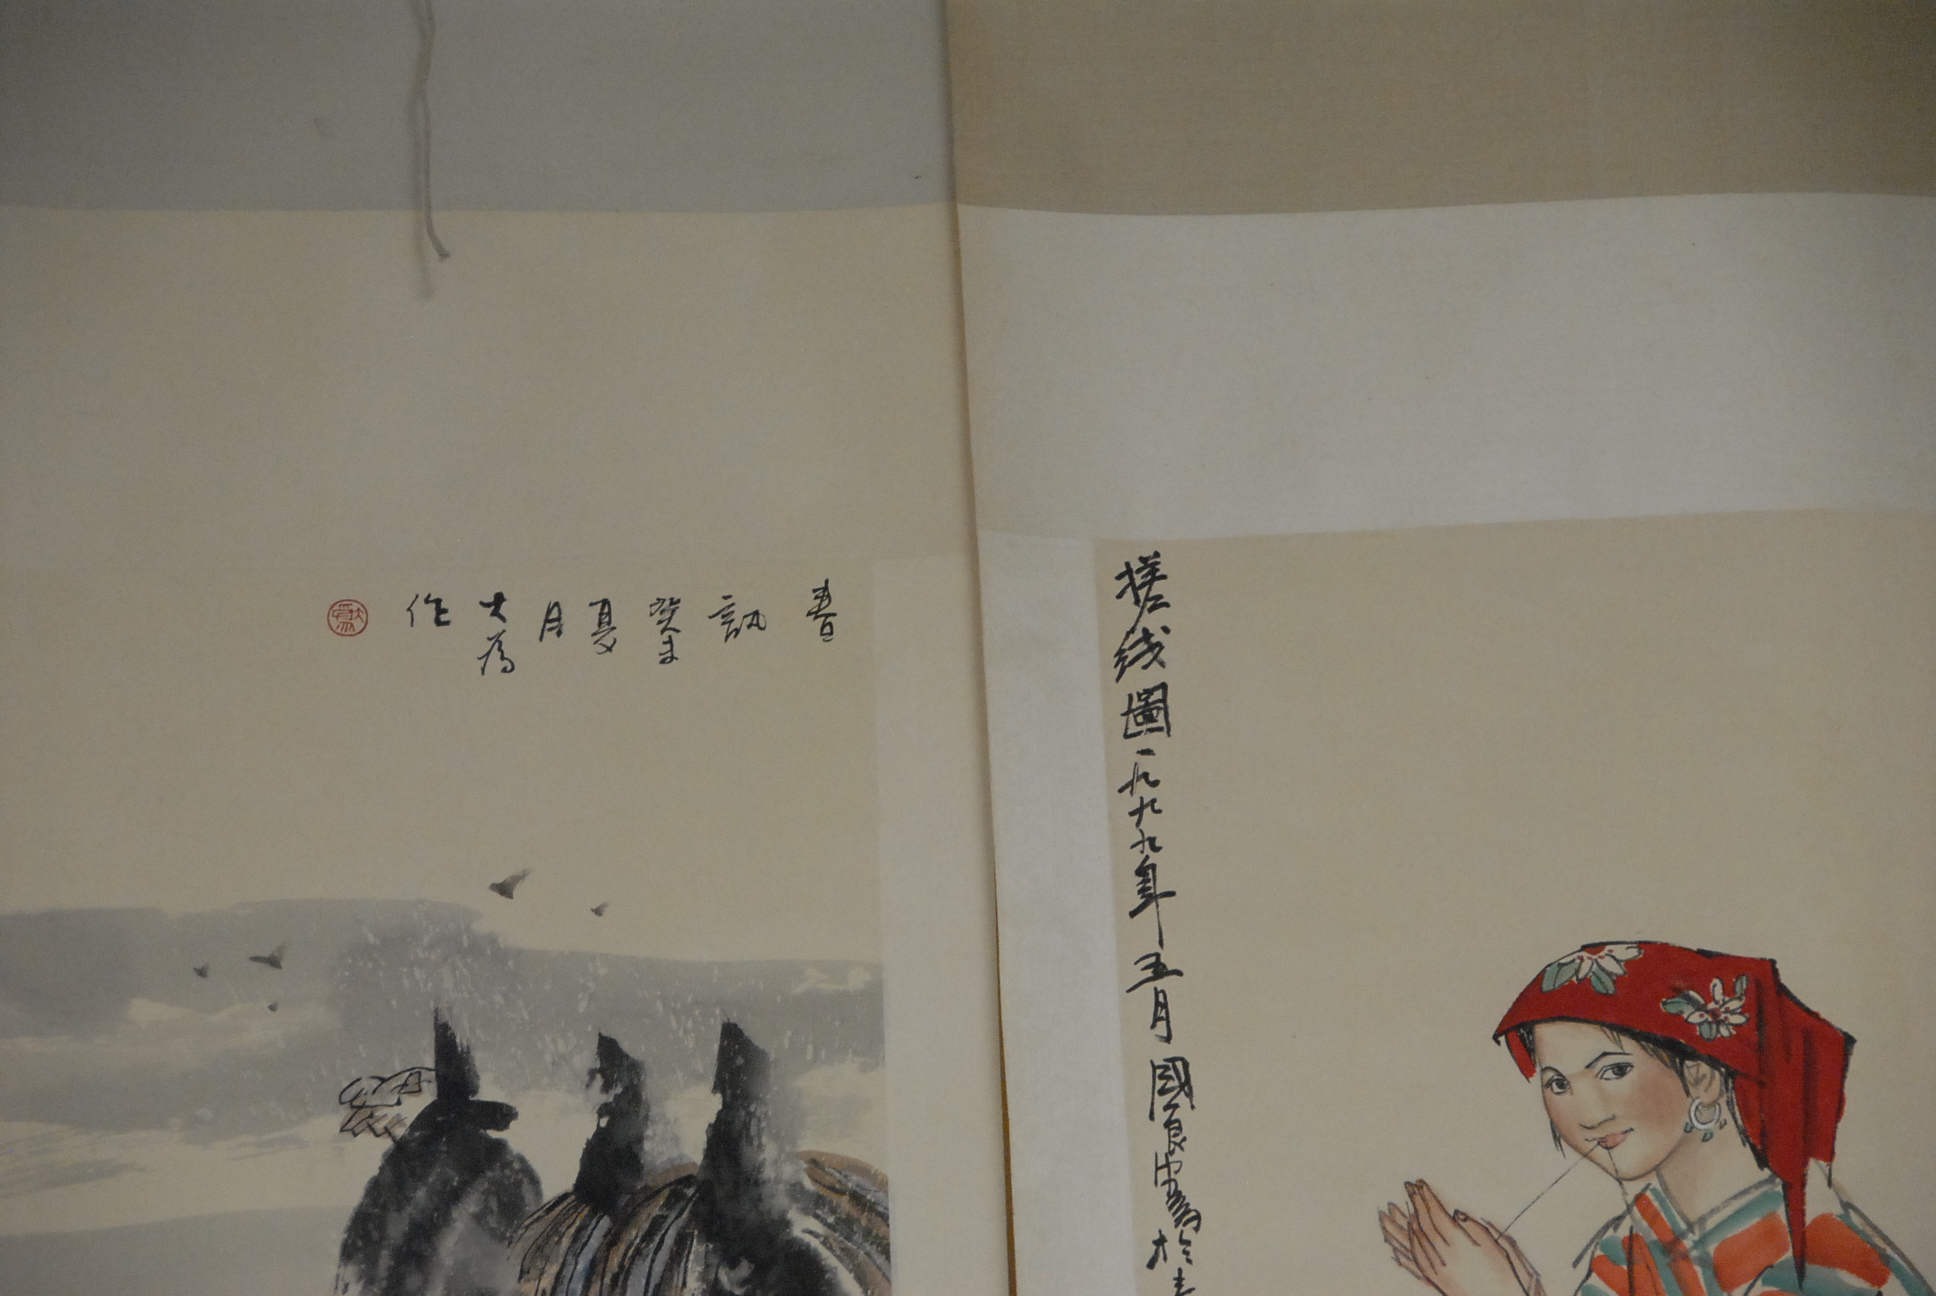 春訊癸未夏月大為作
搓线圖一九九九年五月國良寫於